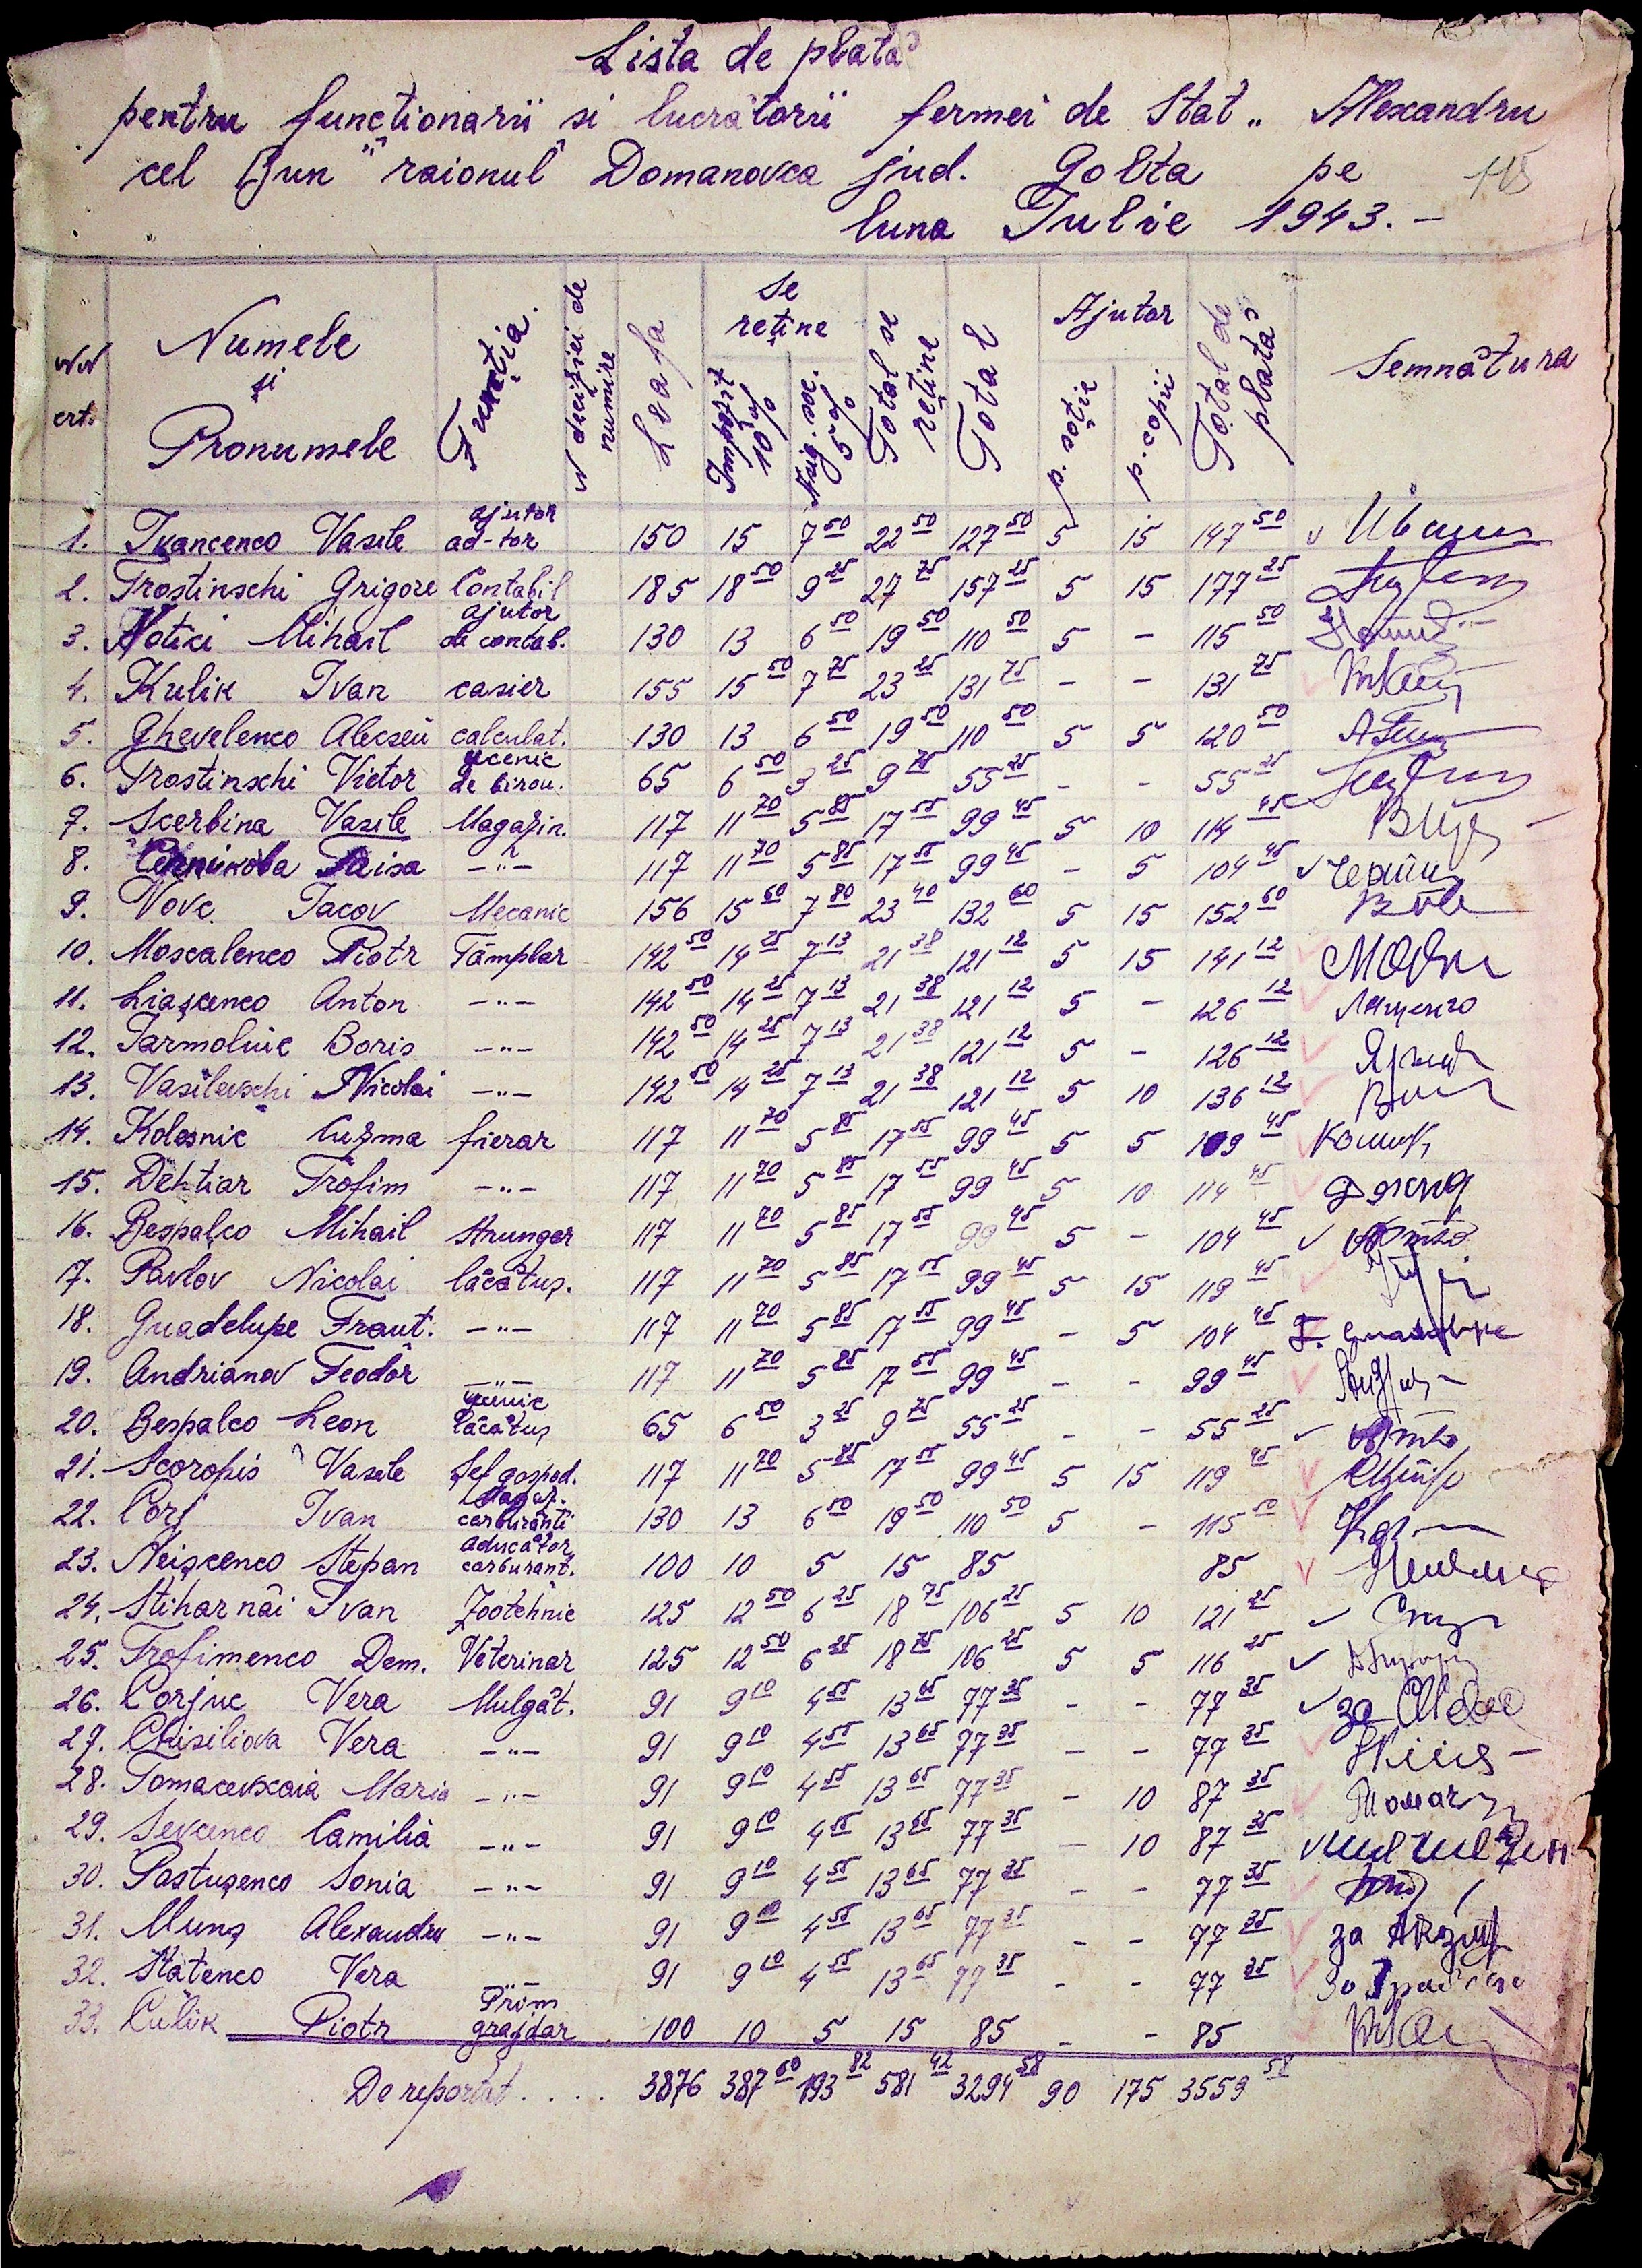 Lista de plată
pentru funcționarii si lucrătorii fermei de Stat „Alexandru
cel Bun" raionul Domanovca jud. Golta pe
luna Iulie 1943.-
115
NN crt. Numele și Pronumele Funcția N deciziei de numire Leafa Se reține Impozit 10% Asig. soc. 5% Total se reține Total Ajutor p. soție p. copii Total de plată Semnătura
1. Ivancenco Vasile ajutor ad-tor 150 15 7 50 22 50 127 50 5 15 147 50
2. Trostinschi Grigore Contabil 185 18 50 9 25 27 75 157 25 5 15 177 25
3. Notici Mihail ajutor de contab. 130 13 6 50 19 50 110 50 5 - 115 50
4. Kulik Ivan casier 155 15 50 7 75 23 25 131 75 - - 131 75
5. Ghevelenco Alecseii calculat. 130 13 6 50 19 50 110 50 5 5 120 50
6. Trostinschi Victor ucenic de birou. 65 6 50 3 25 9 75 55 25 - - 55 25
7. Scerbina Vasile Magazin. 117 11 70 5 85 17 55 99 45 5 10 114 45
8. Cernicova Taisa -"- 117 11 70 5 85 17 55 99 45 - 5 104 45
9. Vovc Iacov Mecanic 156 15 60 7 80 23 40 132 60 5 15 152 60
10. Moscalenco Piotr Tâmplar 142 50 14 25 7 13 21 38 121 12 5 15 141 12
11. Liașcenco Anton -"- 142 50 14 25 7 13 21 38 121 12 5 - 126 12 Лященко
12. Iarmoluic Boris -"- 142 50 14 25 7 13 21 38 121 12 5 - 126 12
13. Vasilevschi Nicolai -"- 142 50 14 25 7 13 21 38 121 12 5 10 136 12
14. Kolesnic Cuzma fierar 117 11 70 5 85 17 55 99 45 5 5 109 45
15. Dehtiar Trofim -"- 117 11 70 5 85 17 55 99 45 5 10 114 45
16. Bespalco Mihail strungar 117 11 70 5 85 17 55 99 45 5 - 104 45
17. Pavlov Nicolai lăcătuș. 117 11 70 5 85 17 55 99 45 5 15 119 45
18. Guadelupe Fraut. -"- 117 11 70 5 85 17 55 99 45 - 5 104 45
19. Andrianov Feodor -"- 117 11 70 5 85 17 55 99 45 - - 99 45
20. Bespalco Leon ucenic lăcătuș 65 6 50 3 25 9 75 55 25 - - 55 25
21. Scoropis Vasile Șef gospod. 117 11 70 5 85 17 55 99 45 5 15 119 45
22. Corj Ivan Magaz. carburanti 130 13 6 50 19 50 110 50 5 - 115 50
23. Neișcenco Stepan aducător carburant. 100 10 5 15 85 85
24. Stiharnâi Ivan Zootehnic 125 12 50 6 25 18 75 106 25 5 10 121 25
25. Trofimenco Dem. Veterinar 125 12 50 6 25 18 75 106 25 5 5 116 25
26. Corjuc Vera Mulgăt. 91 9 10 4 55 13 65 77 35 - - 77 35 за
27. Chisiliova Vera -"- 91 9 10 4 55 13 65 77 35 - - 77 35
28. Tomacevscaia Maria -"- 91 9 10 4 55 13 65 77 35 - 10 87 35
29. Sevcenco Camilia -"- 91 9 10 4 55 13 65 77 35 - 10 87 35
30. Pastușenco Sonia -"- 91 9 10 4 55 13 65 77 35 - - 77 35
31. Munș Alexandru -"- 91 9 10 4 55 13 65 77 35 - - 77 35 за
32. Statenco Vera -"- 91 9 10 4 55 13 65 77 35 - - 77 35
33. Culik Piotr Prim grajdar 100 10 5 15 85 - - 85
De reportat . . . . 3876 387 60 193 82 581 42 3294 58 90 175 3559 58